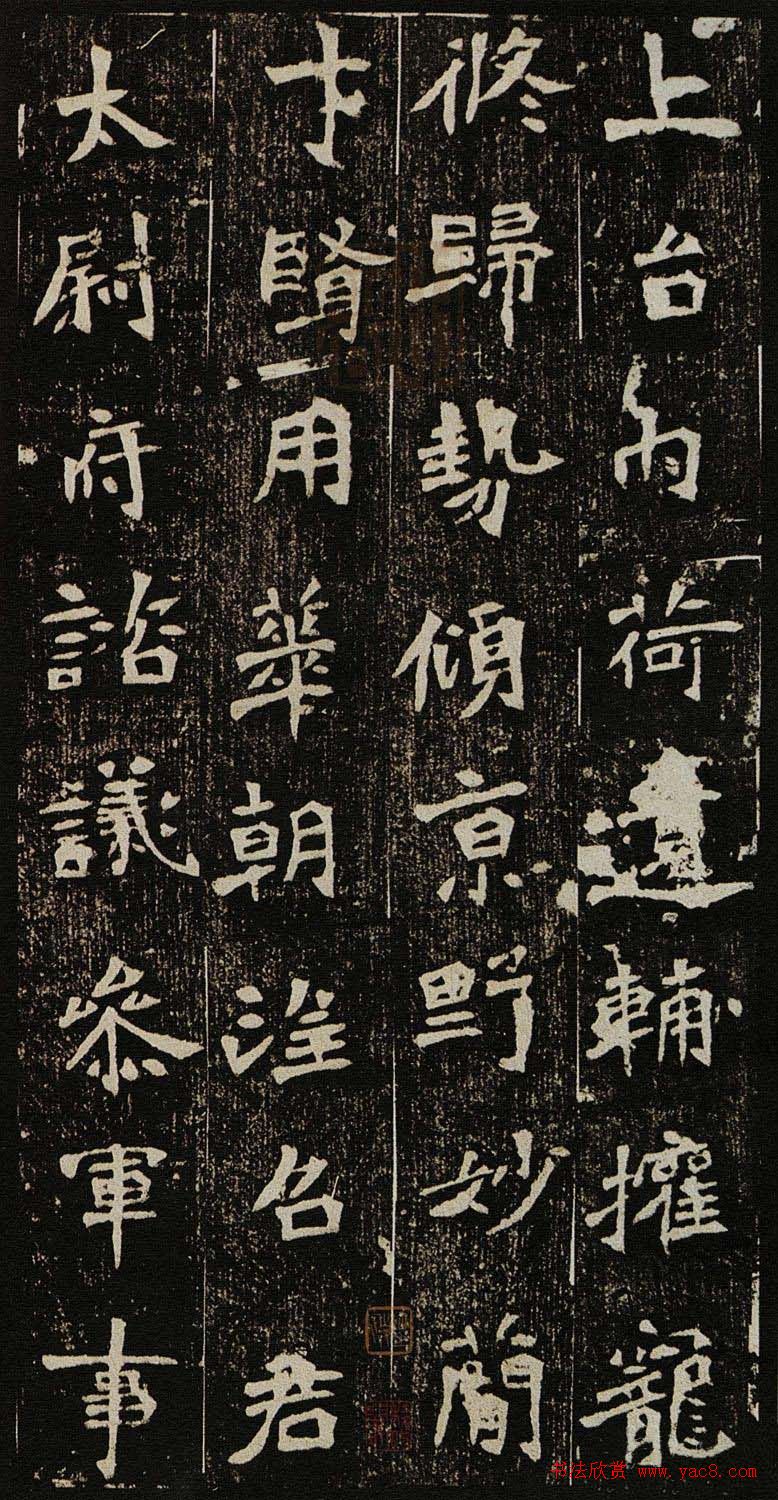 上台內荷遺輔權寵
修歸勢傾京野妙簡
才賢用華朝召君
太尉府諮議參軍事
書法欣赏 www.yac8.com